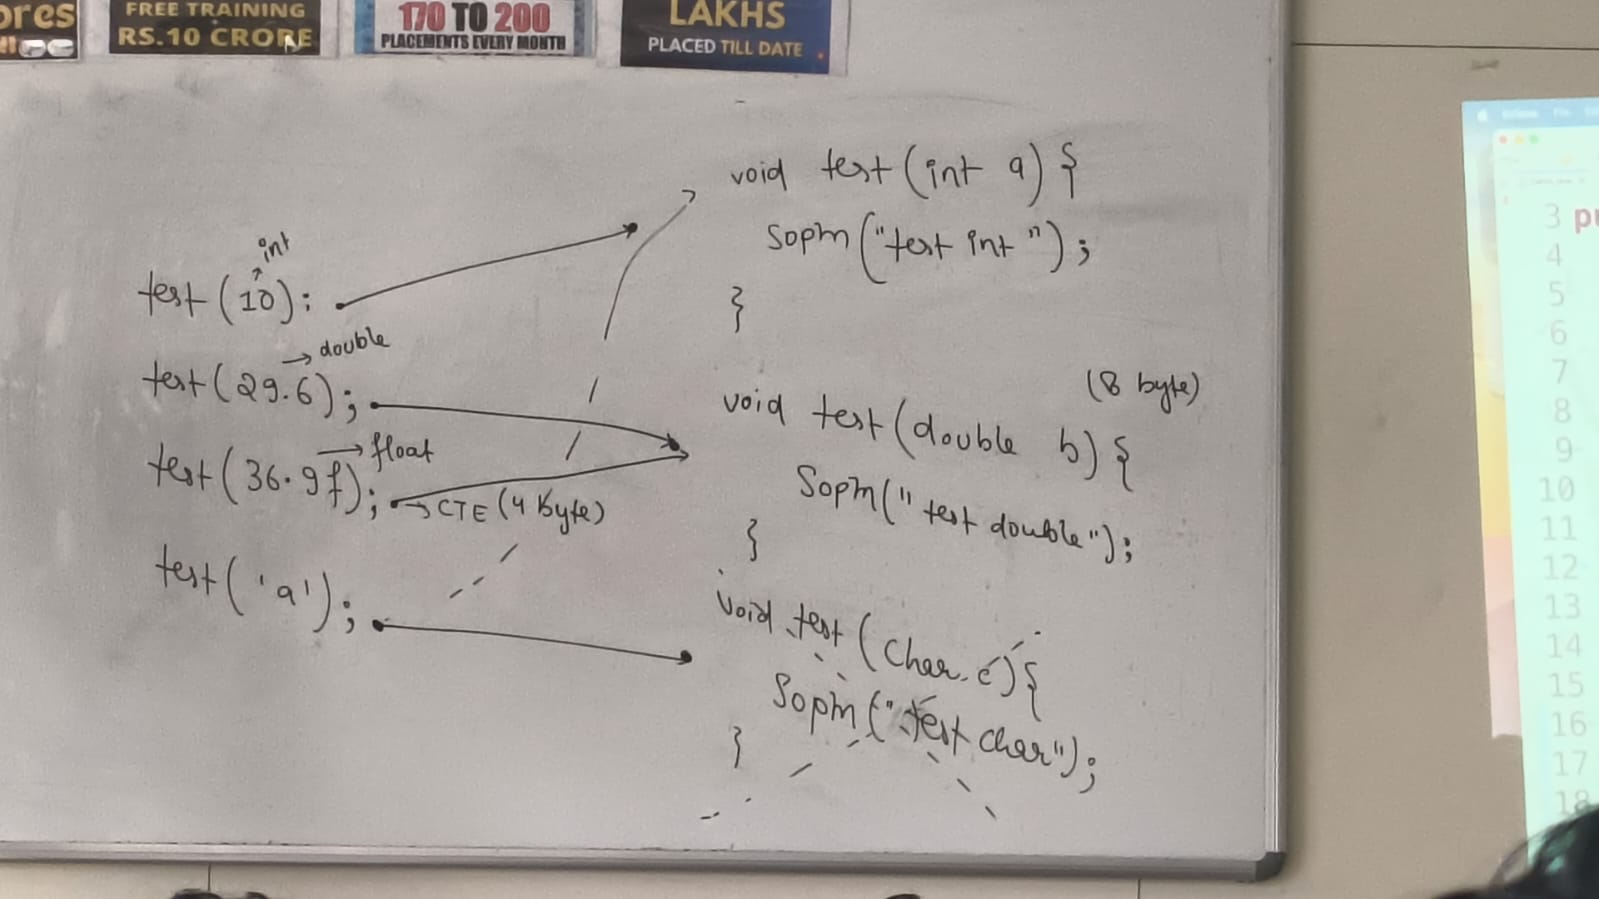 ores
FREE TRAINING
RS.10 CRORE
170 TO 200
PLACEMENTS EVERY MONTH
LAKHS
PLACED TILL DATE
int
test (10);
double
test (29.6);
float
test (36.9f);
CTE (4 byte)
test ('a');
void test (int a) {
Sopln ("test int");
}
(8 byte)
void test (double b) {
Sopln ("test double");
}
void test (char c) {
Sopln ("test char");
}
3
4
5
6
7
8
9
10
11
12
13
14
15
16
17
18